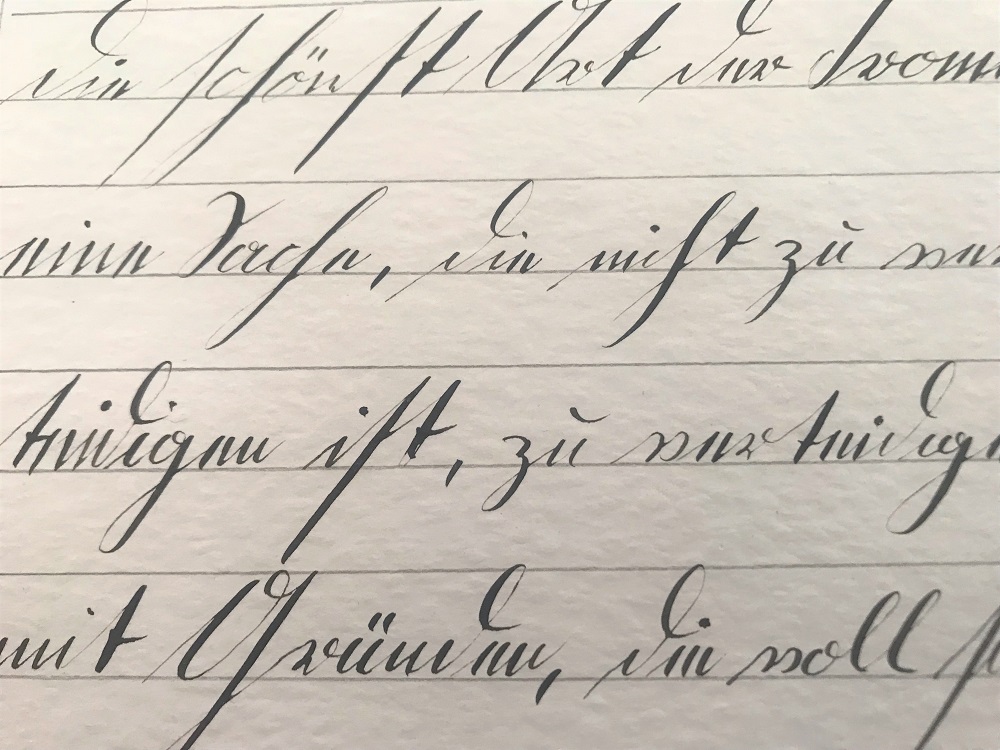 die schönst Art der Iron
eine Sache, die nicht zu ver
teidigen ist, zu verteidige
mit Gründen, die voll